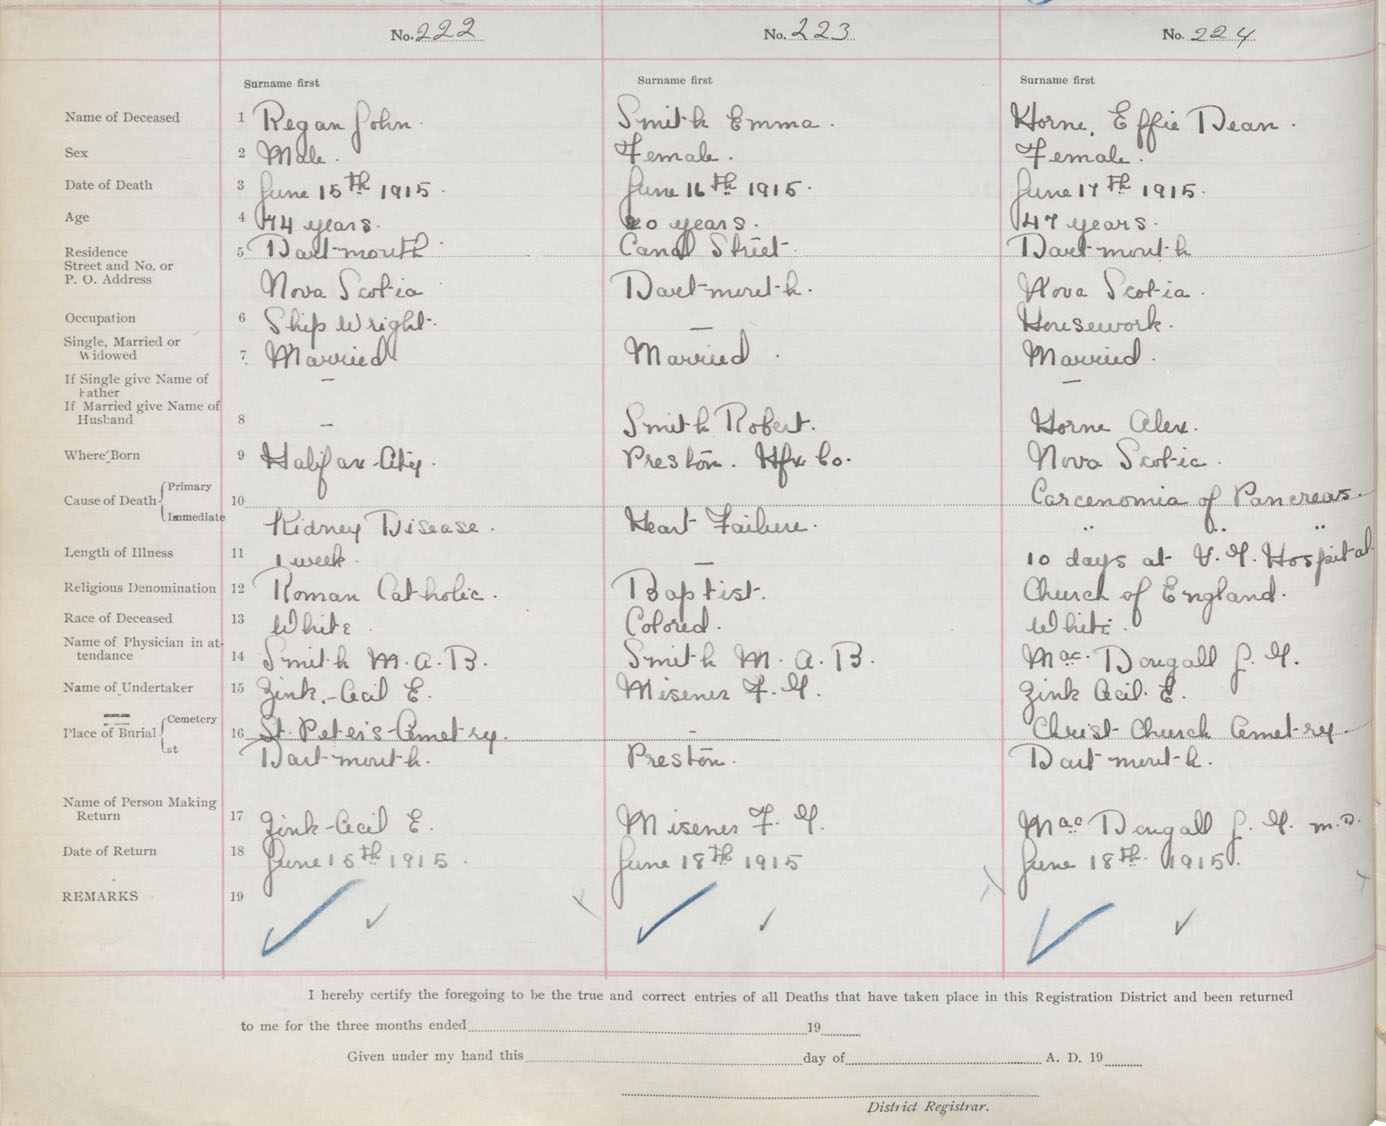 No. 222 No. 223 No. 224
Surname first Surname first Surname first
Name of Deceased 1 Regan John. Smith Emma. Horne, Effie Dean.
Sex 2 Male. Female. Female.
Date of Death 3 June 15th 1915. June 16th 1915. June 17th 1915.
Age 4 74 years. years. 47 years.
Residence 5 Dartmouth Canal Street. Dartmouth
Street and No. or
P. O. Address Nova Scotia Dartmouth. Nova Scotia.
Occupation 6 Ship Wright. — Housework.
Single, Married or
Widowed 7 Married Married. Married.
If Single give Name of — —
Father
If Married give Name of
Husband 8 — Smith Robert. Horne Alex.
Where Born 9 Halifax City. Preston. Hfx Co. Nova Scotia.
Primary Carcenomia of Pancreas.
Cause of Death 10
Immediate Kidney Disease. Heart Failure. " " "
Length of Illness 11 1 week. — 10 days at V. G. Hospital.
Religious Denomination 12 Roman Catholic. Baptist. Church of England.
Race of Deceased 13 White. Colored. White.
Name of Physician in at-
tendance 14 Smith M. A. B. Smith M. A. B. Mac. Dougall J. G.
Name of Undertaker 15 Zink, Cecil E. Misener F. G. Zink Cecil. E.
Cemetery
Place of Burial 16 St. Peter's Cemetry. - Christ Church Cemetry.
at Dartmouth. Preston. Dartmouth.
Name of Person Making
Return 17 Zink Cecil E. Misener F. G. Mac Dougall J. G. M.D.
Date of Return 18 June 15th 1915. June 18th 1915 June 18th. 1915.
REMARKS 19
I hereby certify the foregoing to be the true and correct entries of all Deaths that have taken place in this Registration District and been returned
to me for the three months ended 19
Given under my hand this day of A. D. 19
District Registrar.